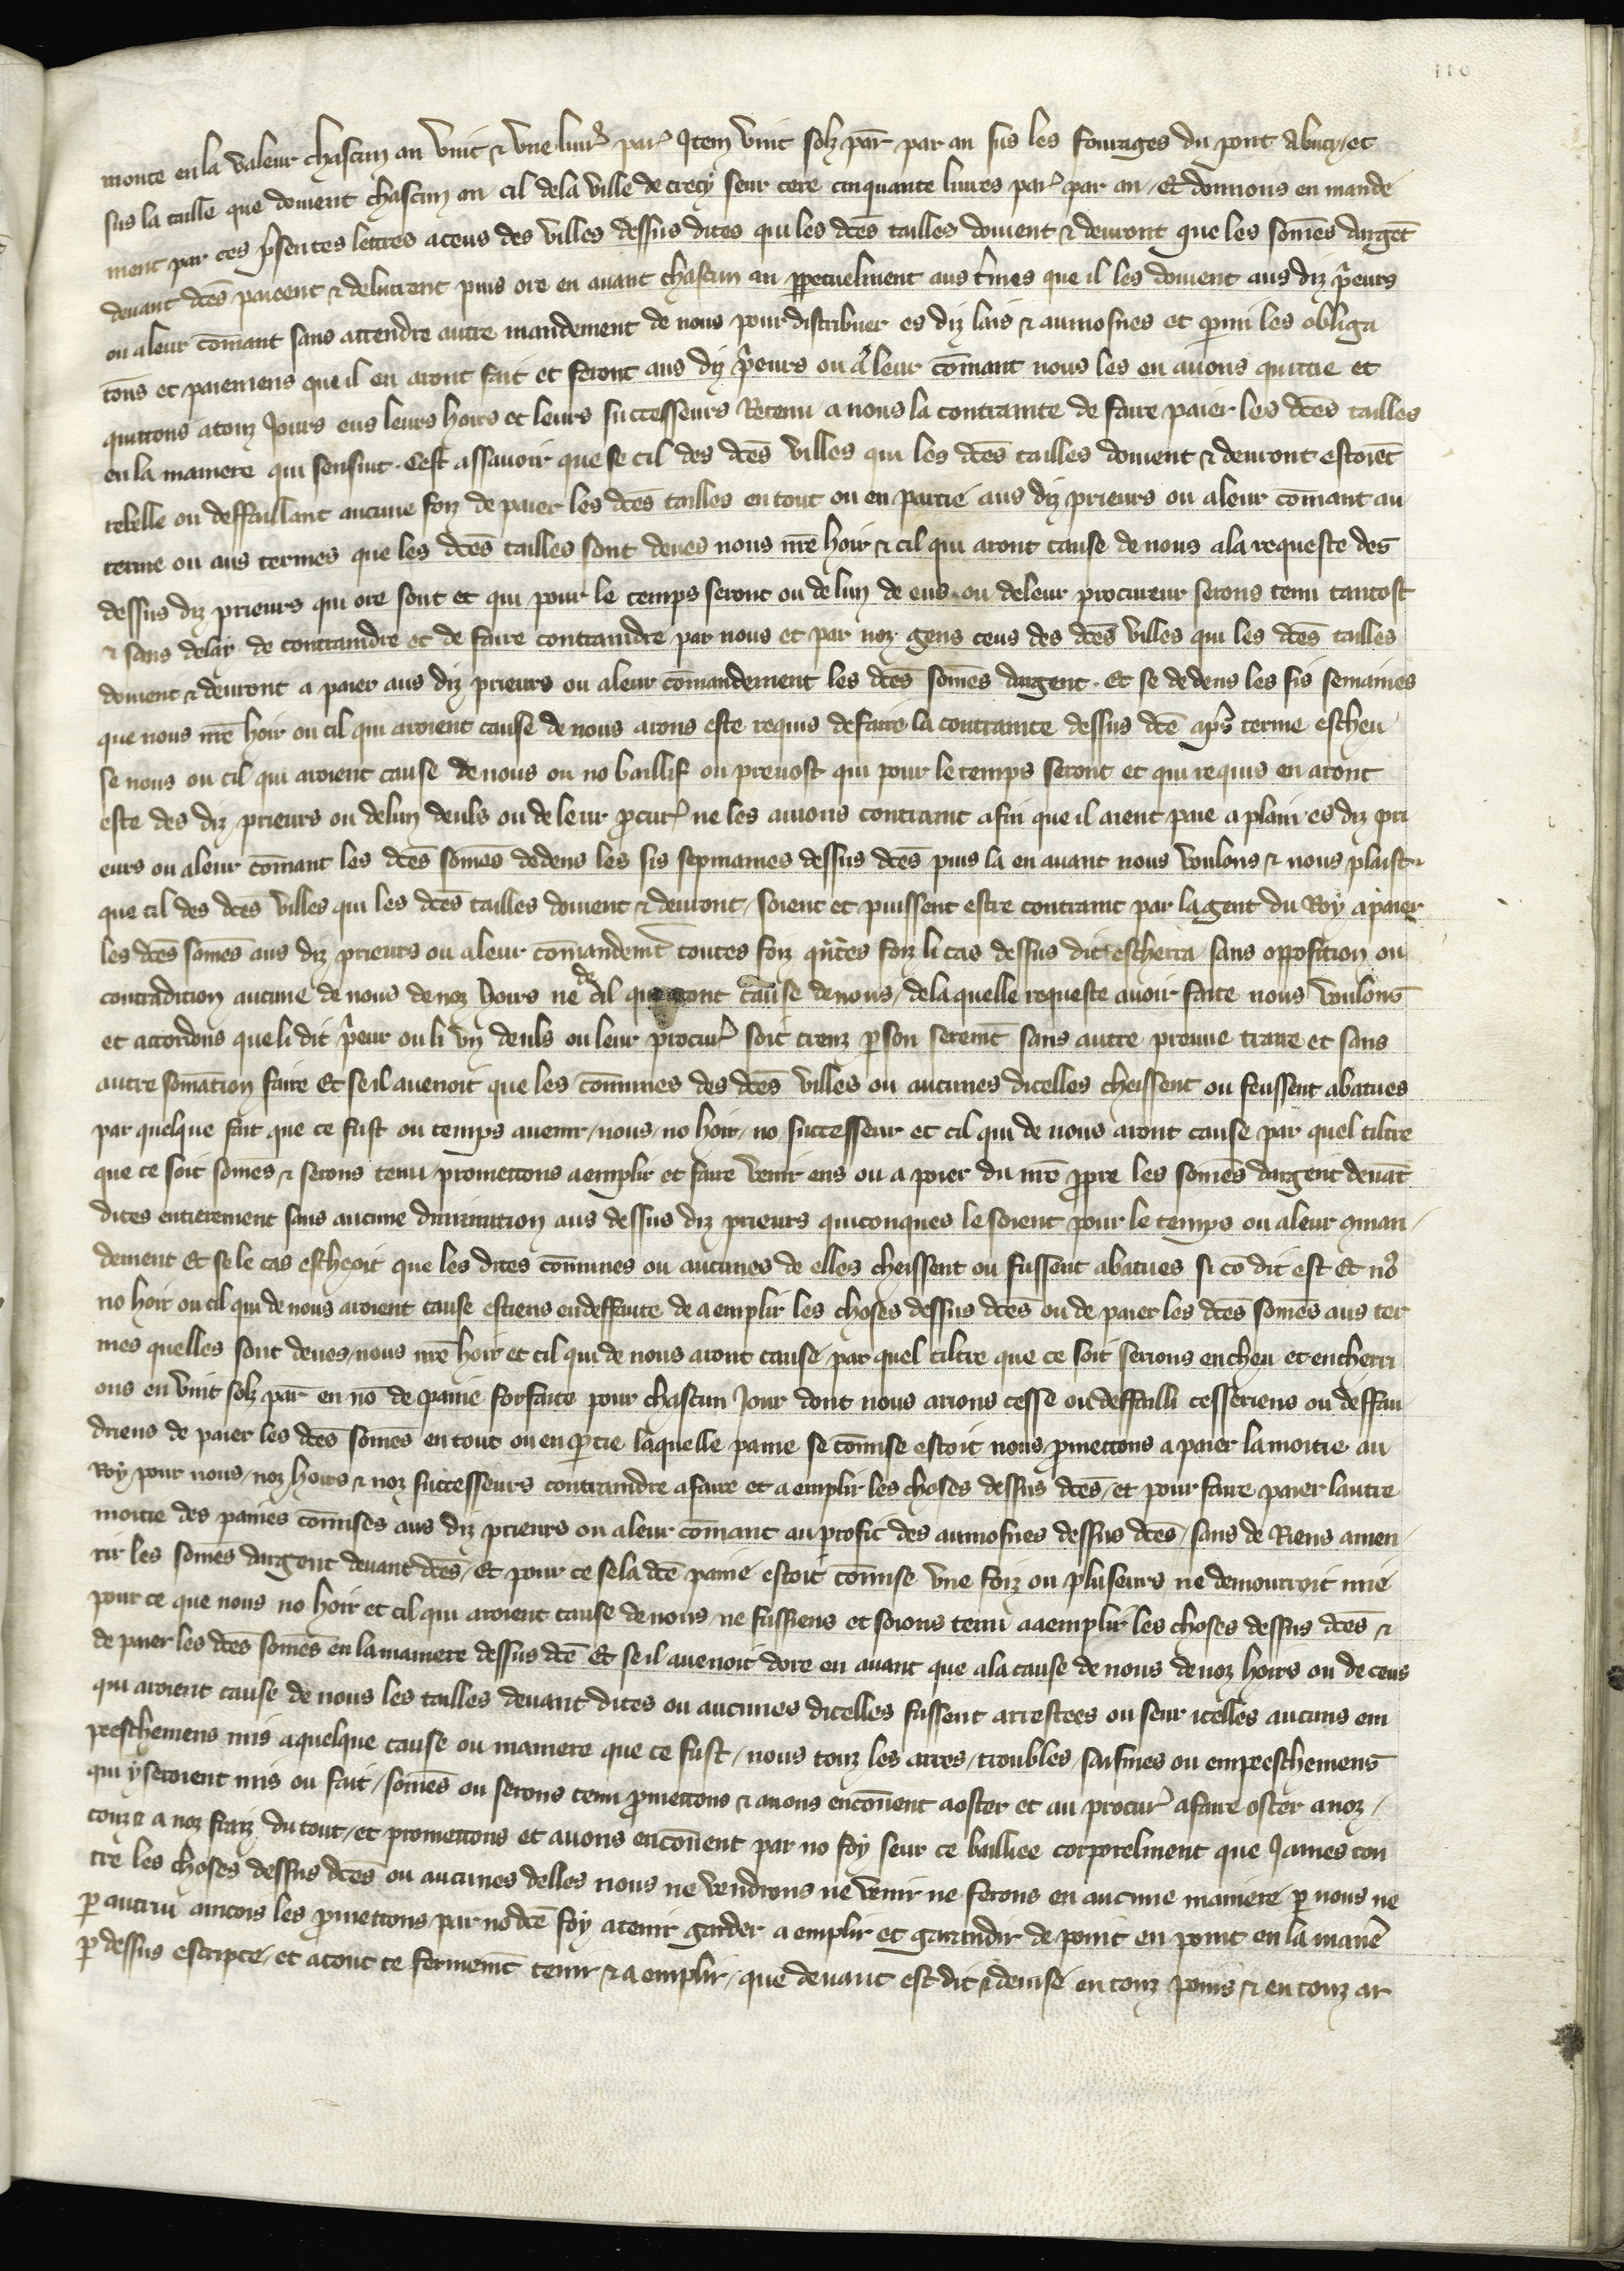 110
monte en la valeur chascun an vint & vne liur̉ par̉ Item vint solz par̄ par an sus les fourages du pont A bucy et
sus la taille que doiuent chascun an cil dela ville de crecy seur cere cinquante liures par̉ par an / Et donnons en mande
ment par ces p̄sentes lettres aceus des villes dessus dites qui les dc̄es tailles doiuent & deuront que les som̄es dargēt
deuant dc̄es paieent & deliurent puis ore en auant chascun an ꝑpetuelment aus t̄mes que il les doiuent aus diz p̄eurs
ou aleur com̄ant sans attendre autre mandement de nous pour distribuer es diz lais & aumosnes et ꝑmi les obliga
cōns et paiemens que il en aront fait et feront aus diz p̄eurs ou a leur com̄ant nous les en auons quittie et
quittons atouz Iours eus leurs hoirs et leurs successeurs Retenu a nous la contrainte de faire paier les dc̄es tailles
en la maniere qui sensiut . Cest assauoir que se cil des dc̄es villes qui les dc̄es tailles doiuent & deuront estoiēt
rebelle ou deffaillant aucune foiz de paier les dc̄es tailles en tout ou en partie aus diz prieurs ou aleur com̄ant au
terme ou aus termes que les dc̄es tailles sont deues nous nr̄e hoir & cil qui aront cause de nous ala requeste des
dessus diz prieurs qui ore sont et qui pour le temps seront ou de lun de eus ou deleur procureur serons tenu tantost
& sans delay de contraindre et de faire contraindre par nous et par noz gens ceus des dc̄es villes qui les dc̄es tailles
doiuent & deuront a paier aus diz prieurs ou aleur com̄andement les dc̄es som̄es dargent . Et se dedens les sis semaines
que nous nr̄e hoir ou cil qui aroient cause de nous arons este requis defaire la contrainte dessus dc̄e ap̄s terme escheu
se nous ou cil qui aroient cause de nous ou no baillif ou preuost qui pour le temps seront et qui requis en aront
este des diz prieurs ou delun deuls ou de leur ꝓcur̉ ne les auions contraint afin que il aient paie aplain es diz pri
eurs ou aleur com̄ant les dc̄es som̄es dedens les sis sepmaines dessus dc̄es puis la en auant nous voulons & nous plaist
que cil des dc̄es villes qui les dc̄es tailles doiuent & deuront / soient et puissent estre contraint par la gent du Roy apaier
les dc̄es som̄es aus diz prieurs ou aleur com̄andem̄t toutes foiz q̄ntes foiz li cas dessus dit escherra / sans opposition ou
contradition aucune de nous de noz hoirs ne de cil qui aront cause denous / dela quelle requeste auoir faite nous voulons
et accordons que li dit p̄eur ou li vn deuls ou leur procur̉ soit creuz ꝑ son serem̄t sans autre preuue traire et sans
autre som̄ation faire Et se il auenoit que les com̄unes des dc̄es villes ou aucunes dicelles cheissent ou feussent abatues
par quelque fait que ce fust ou temps auenir / nous / no hoir / no successeur et cil qui de nous aront cause par quel tiltre
que ce soit som̄es & serons tenu promettons aemplir et faire venir ens ou a paier du nr̄e ꝓpre les som̄es dargent deuāt
dites entierement sans aucune diminution aus dessus diz prieurs quiconques le soient pour le temps ou aleur 9man
dement Et se le cas escheoit que les dites com̄unes ou aucunes de elles cheissent ou fussent abatues si cō dit est Et no9
no hoir ou cil qui de nous aroient cause estiens endeffaute de a emplir les choses dessus dc̄es ou de paier les dc̄es som̄es aus ter
mes quelles sont deues / nous nr̄e hoir et cil qui de nous aront cause / par quel tiltre que ce soit serions encheu et encherri
ons en vint solz par̄ en nō de paine forfaite pour chascun Iour dont nous arions cesse ou deffailli cesseriens ou deffau
driens de paier les dc̄es som̄es en tout ou en ꝑtie laquelle paine se com̄ise estoit nous ꝓmettons a paier la moitie au
Roy pour nous / noz hoirs & noz successeurs contraindre afaire et a emplir les choses dessus dc̄es / et pour faire paier lautre
moitie des paines com̄ises aus diz prieurs ou aleur com̄ant au profit des aumosnes dessus dc̄es / sans de Riens amen
rir les som̄es dargent deuant dc̄es / Et pour ce se la dc̄e paine estoit com̄ise vne foiz ou pluseurs ne demourroit mie
pour ce que nous no hoir et cil qui aroient cause de nous ne fussiens et soions tenu a aemplir les choses dessus dc̄es &
de paier les dc̄es som̄es en la maniere dessus dc̄e Et se il auenoit dore en auant que a la cause de nous de noz hoirs ou de ceus
qui aroient cause de nous les tailles deuant dites ou aucunes dicelles fussent arrestees ou seur icelles aucuns em
peeschemens mis a quelque cause ou maniere que ce fust / nous touz les arres / troubles / saisines ou empeeschemens
qui y seroient mis ou fait / som̄es ou serons tenu ꝓmettons & auons encōuent aoster et au procur̉ afaire oster anoz
couz & a noz fraiz du tout / et promettons et auons encōuent par no foy seur ce bailliee corporelment que Iames con
tre les choses dessus dc̄es ou aucunes delles nous ne vendrons ne venir ne ferons en aucune maniere ꝑ nous ne
ꝑ autrui aincois les ꝓmettons par no dc̄e foy atenir garder a emplir et garandir de point en point en la man̄e
ꝑ dessus escripte / et atout ce fermem̄t tenir & a emplir / que deuant est dit & deuise en touz poins & en touz ar